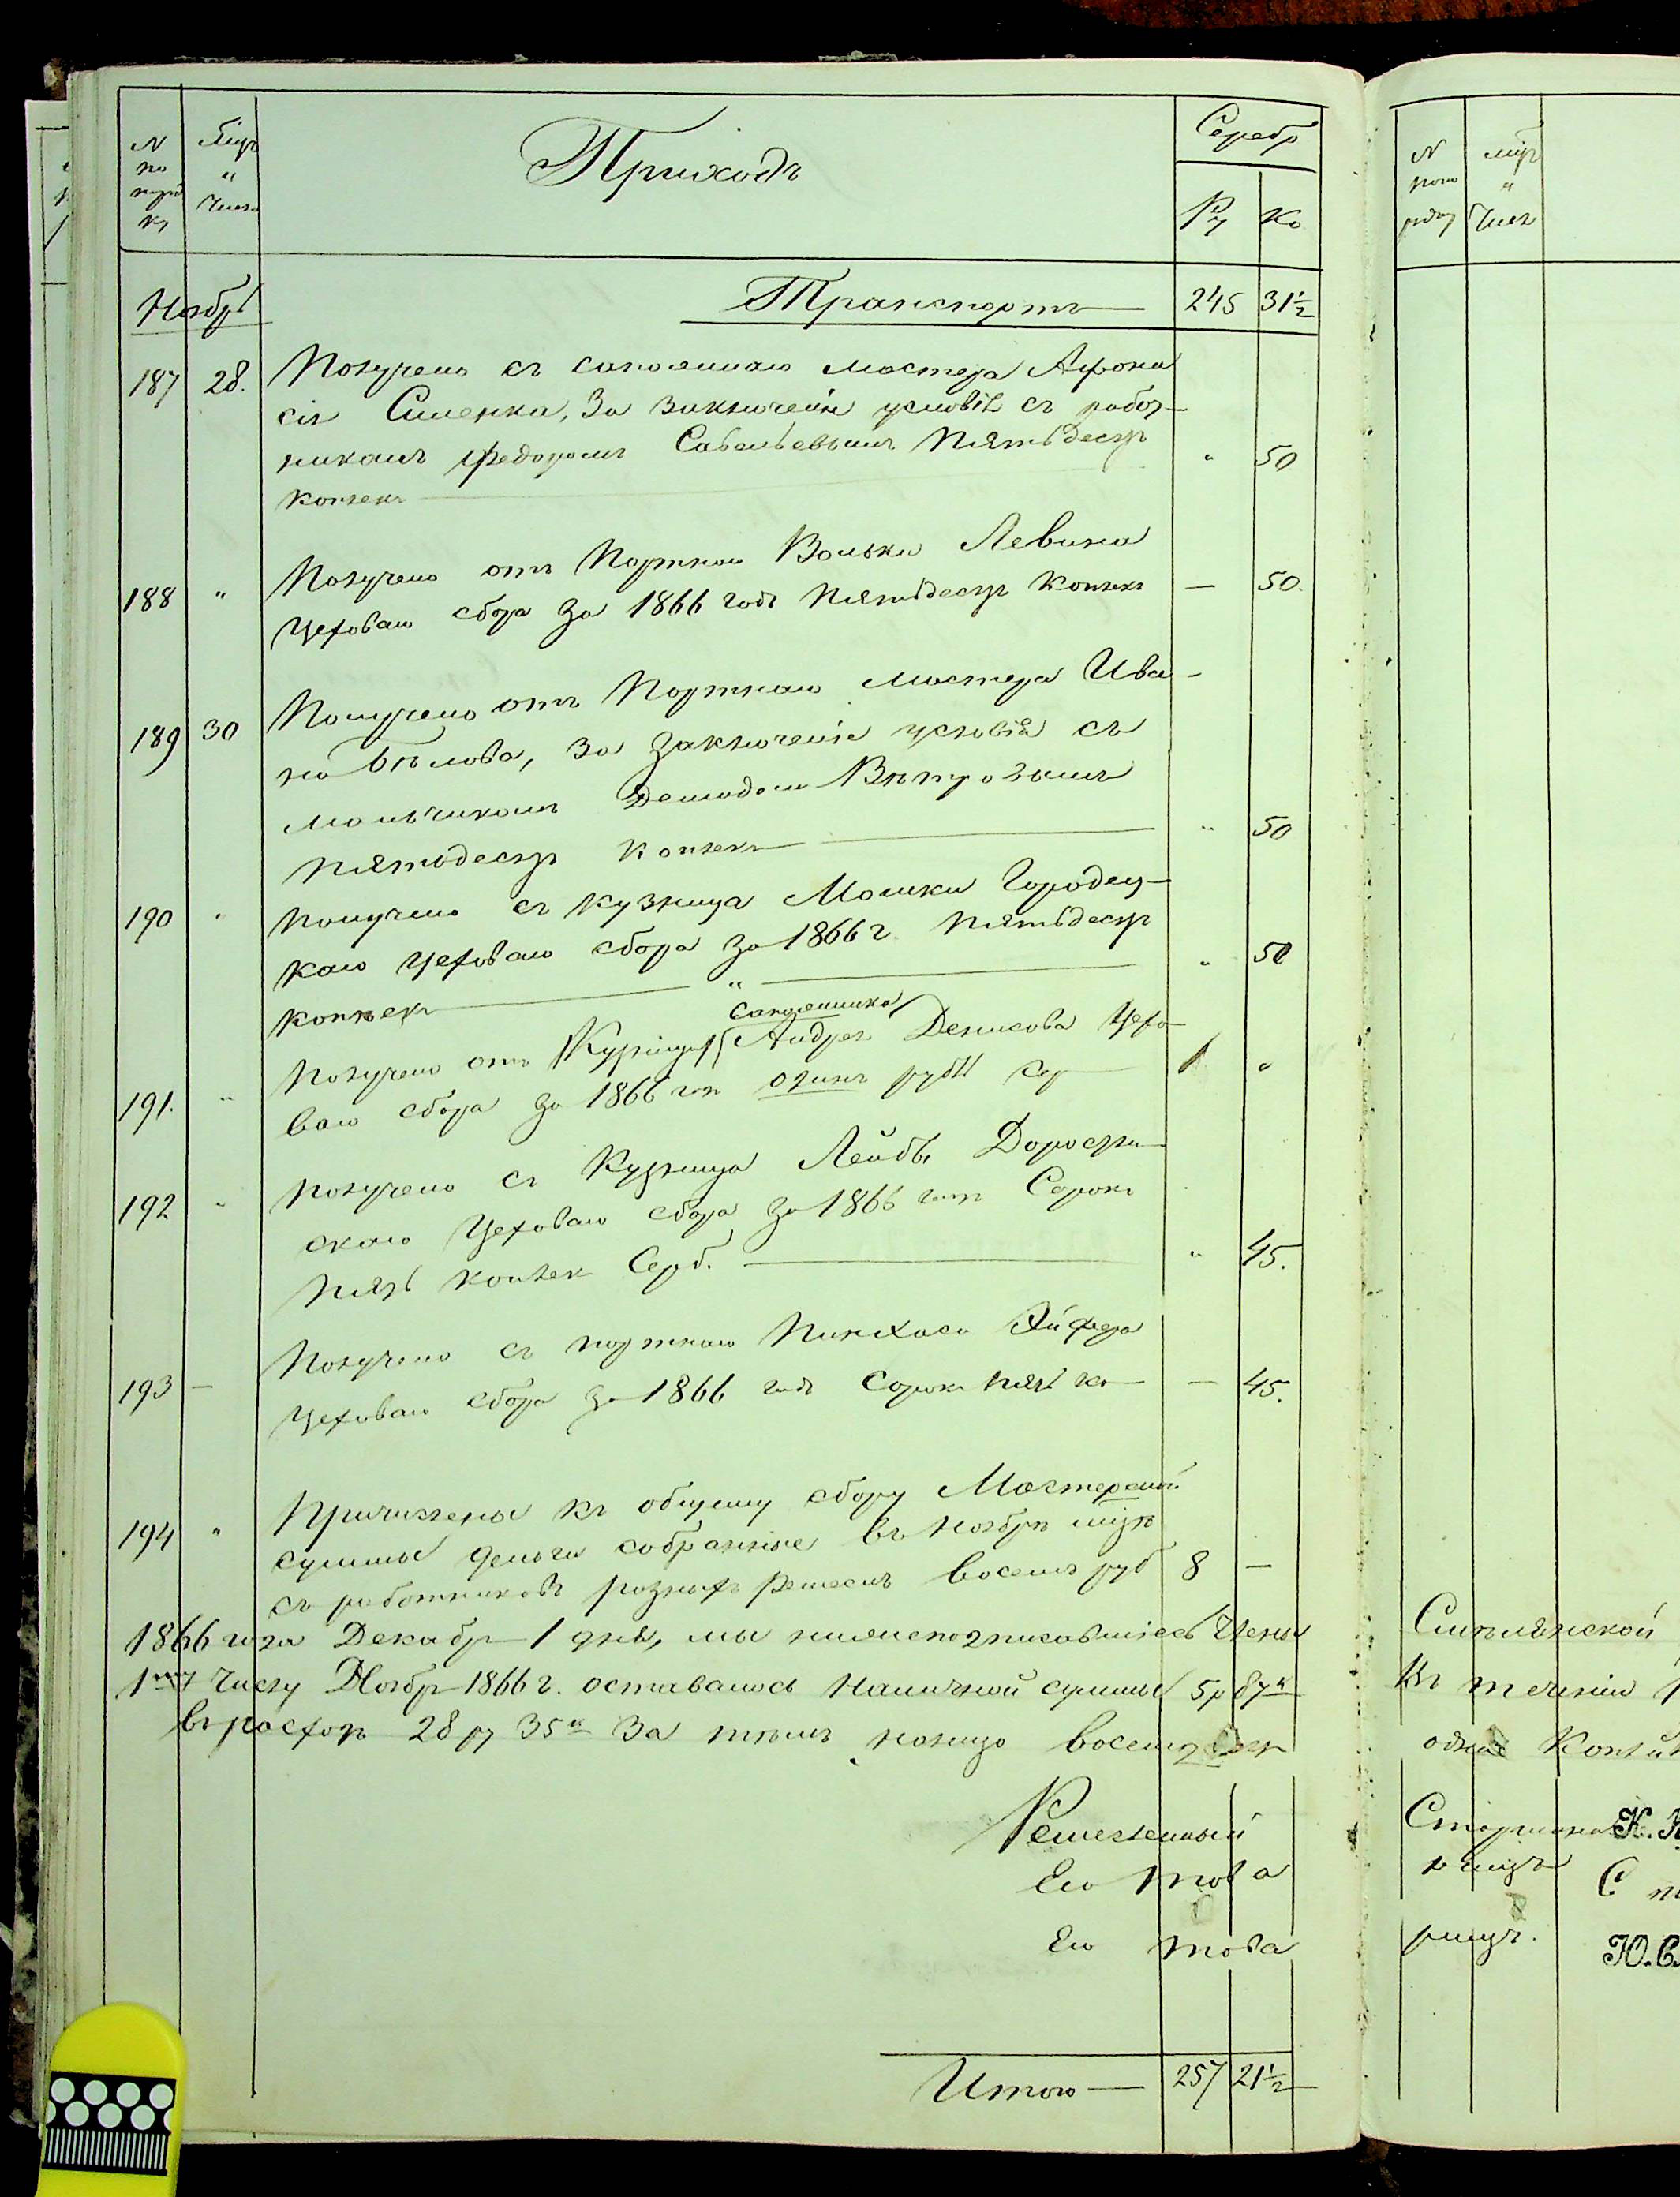 N по поряд ку
Мѣцъ " Число
Приходъ
Серебр
Ру Ко
Ноябрь Транспортъ 245 31½
187 28. Получено съ сапожнаго мастера Афона
сія Сименка, За заключеніе условія съ работ-
никамъ Федоромъ Савельевымъ Пятьдесятъ " 50
копѣекъ
188 " Получено отъ Портнаго Вольки Левина
Цеховаго сбора за 1866 годъ Пятьдесятъ Копѣекъ — 50.
189 30 Получено отъ Портнаго мастера Ива-
на Бѣлова, За заключеніе условія съ
мальчикомъ Демидом Вѣтровымъ
пятьдесятъ копѣекъ " 50
190 " Получено съ кузнеца Мошки Городец-
каго Цеховаго сбора за 1866 г. Пятьдесятъ
копѣекъ " " 50
сапожника
191. " Получено отъ Кузнеца Андрея Денисова Цехо-
ваго сбора за 1866 год одинъ рубль сер 1 "
192 " получено съ Кузнеца Лейбы
скаго Цеховаго сбора за 1866 годъ Сорокъ
Пять копѣек Сереб. " 45.
193 — Получено съ портнаго Пинхаса
Цеховаго сбора за 1866 годъ Сорокъ пять ко — 45.
194 " Причислены къ общему сбору Мастерской
суммы деньги собранные въ Ноябрѣ мцѣ
съ работниковъ разныхъ ремеслъ восемь руб 8 —
1866 года Декабря 1 дня, мы нижеподписавшіесь Члены
1му Числу Ноября 1866 г. оставалось Наличной суммы 5р 87к
въ расходъ 28 ру 35к За тѣмъ налицо восемдесят
Ремесленный
Его това
Его това
Итого — 257 21½
N поро рдку
мцъ " Числ
Смѣлянской
Въ теченіи
одна Копѣй
Старшина К.
рищъ С
рищъ. Ю.С.